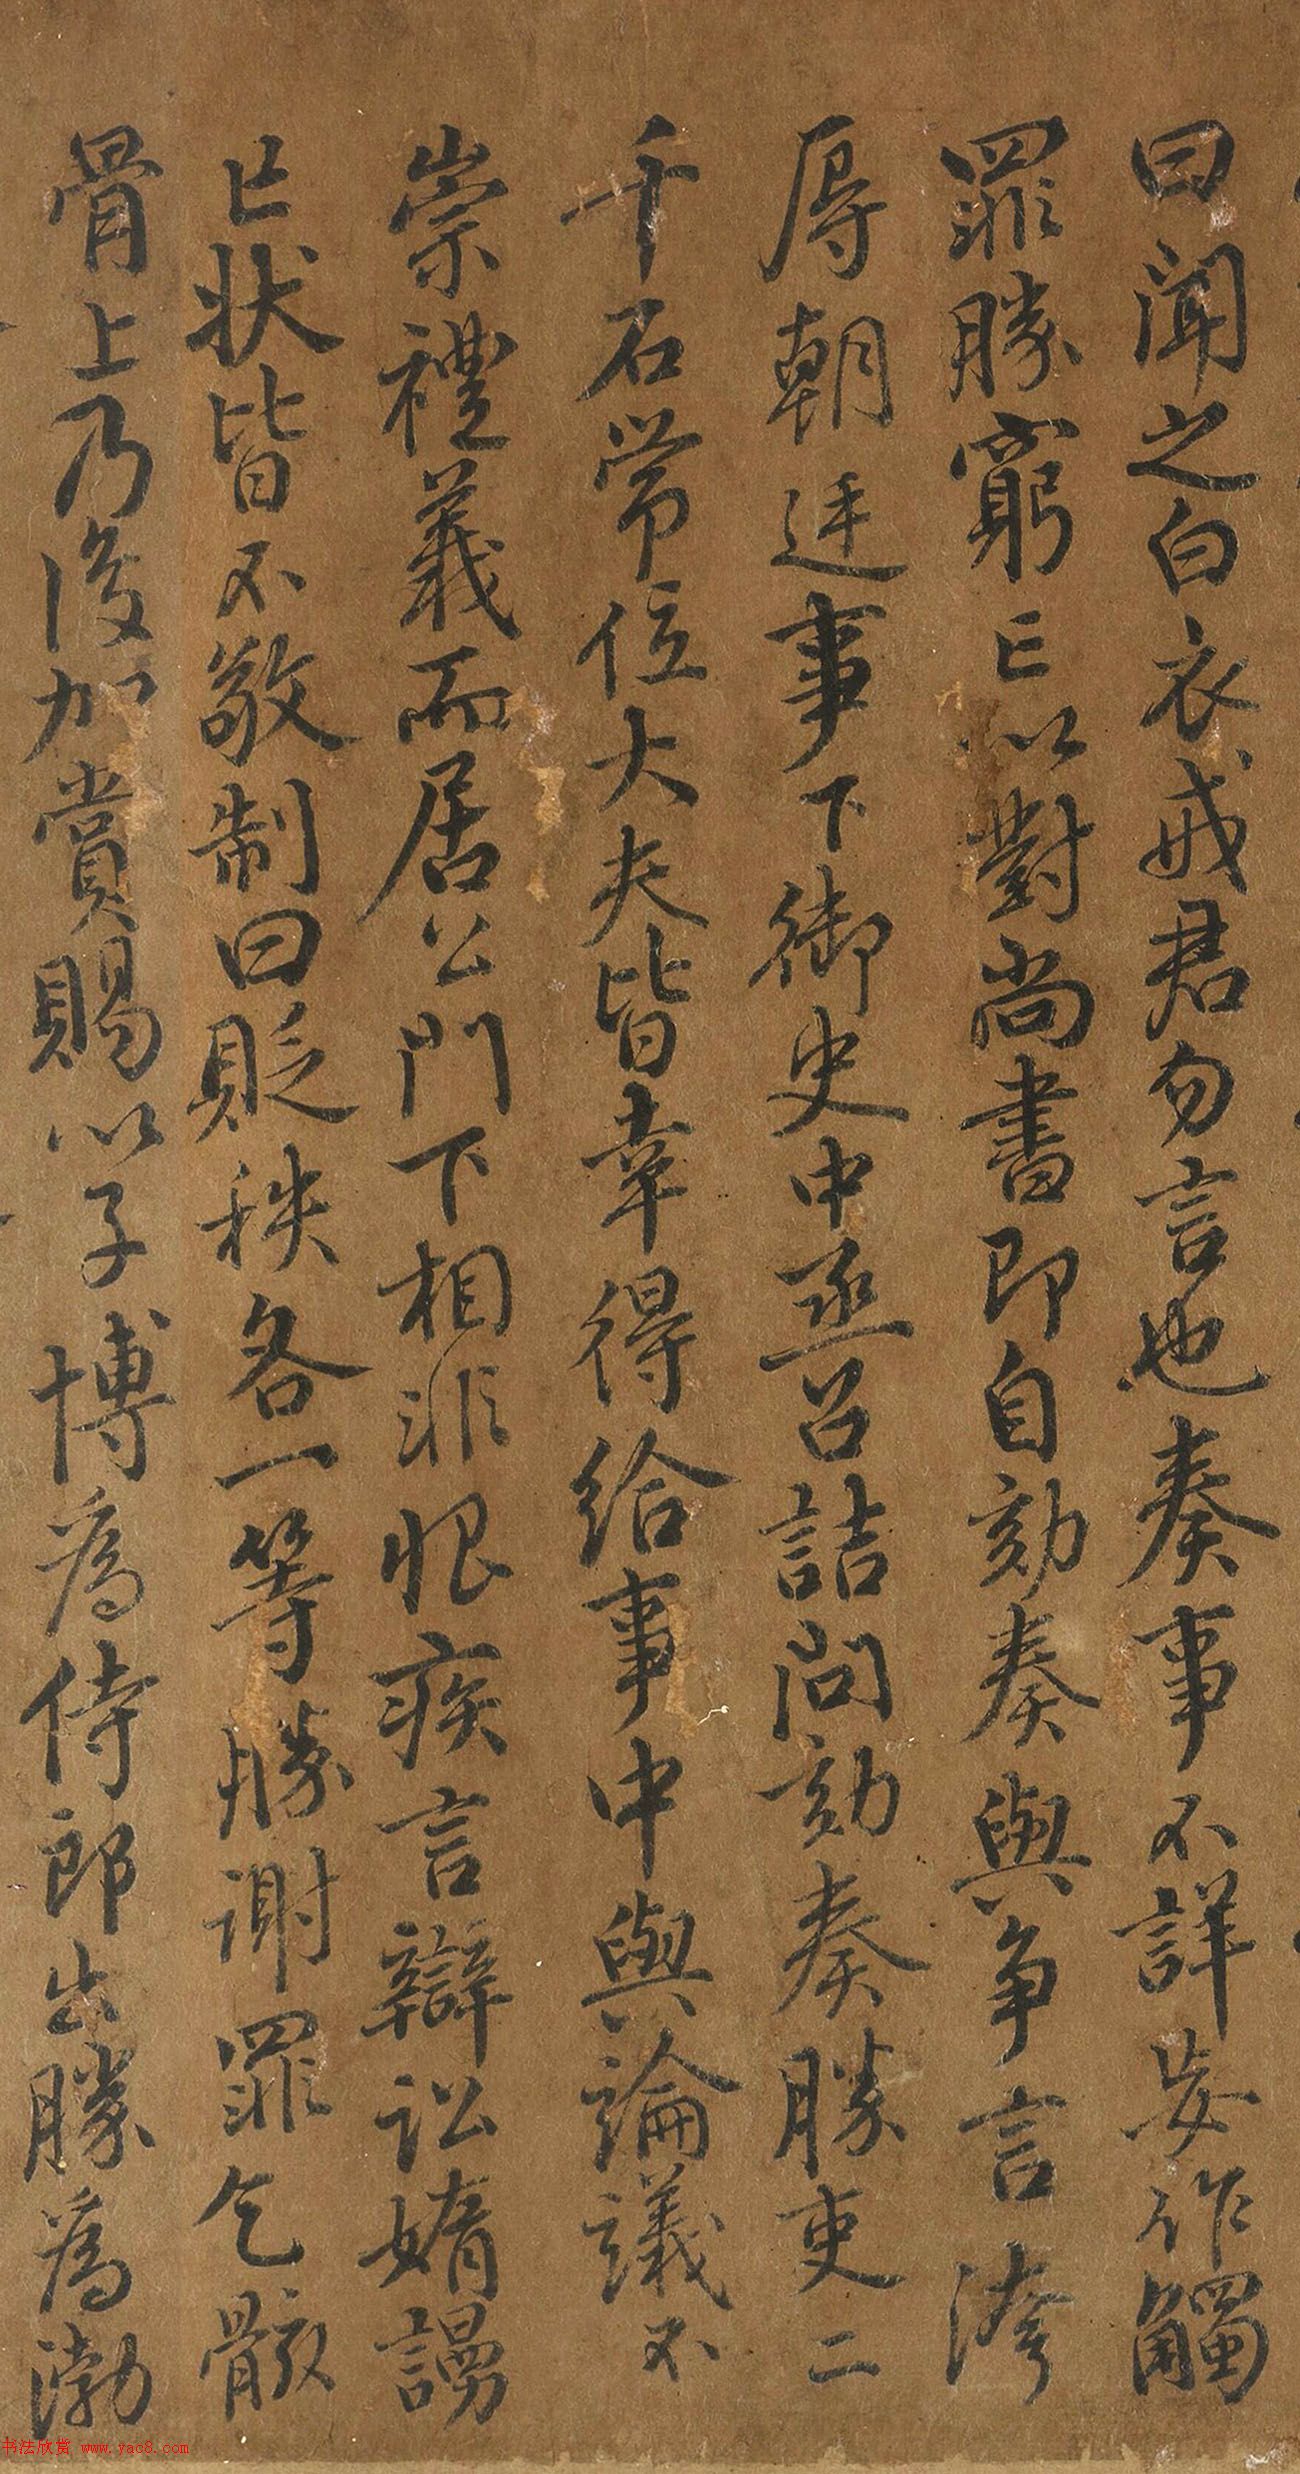 曰聞之白衣戒君勿言也奏事不詳妄作觸
罪勝窮亡以對尚書即自劾奏與争言洿
辱朝廷事下御史中丞召詰問劾奏勝吏二
千石常位大夫皆幸得給事中與論議不
崇禮義而居公門下相非恨疾言辯訟媠謾
亡状皆不敬制曰貶秩各一等勝謝罪乞骸
骨上乃復加賞賜以子博為侍郎出勝為渤
书法欣赏 www.yac8.com